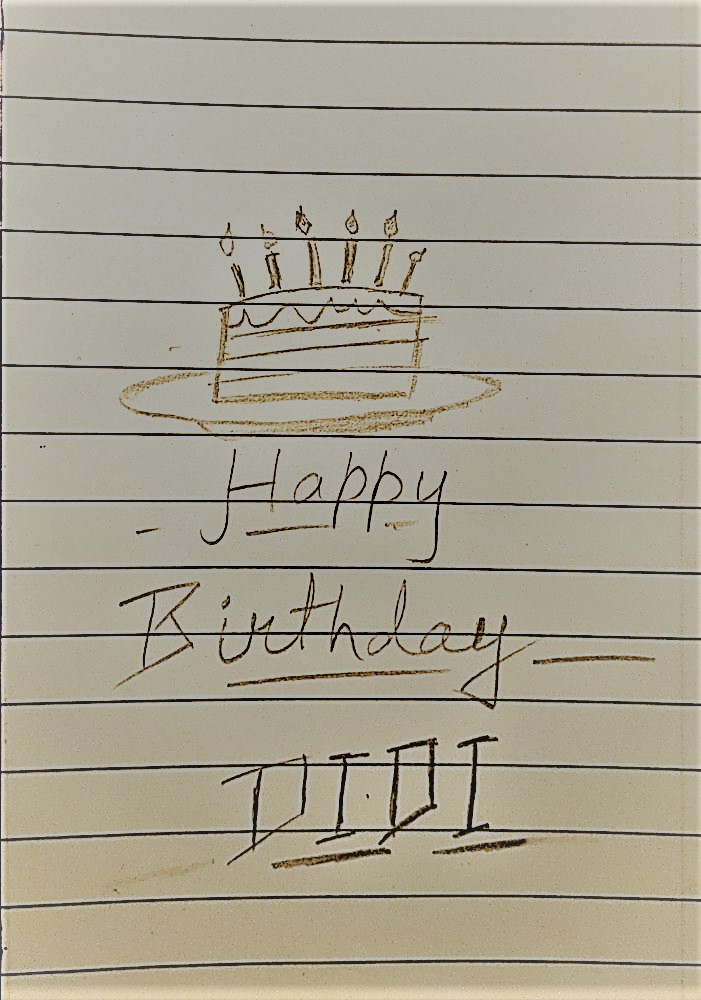 Happy
Birthday
DIDI